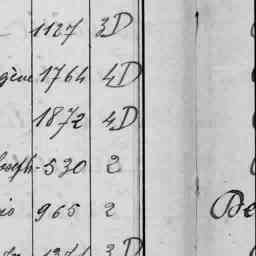 1127 3D
gène 1764 4D
1872 4D
Joseph 530 2
965 2
De
3D